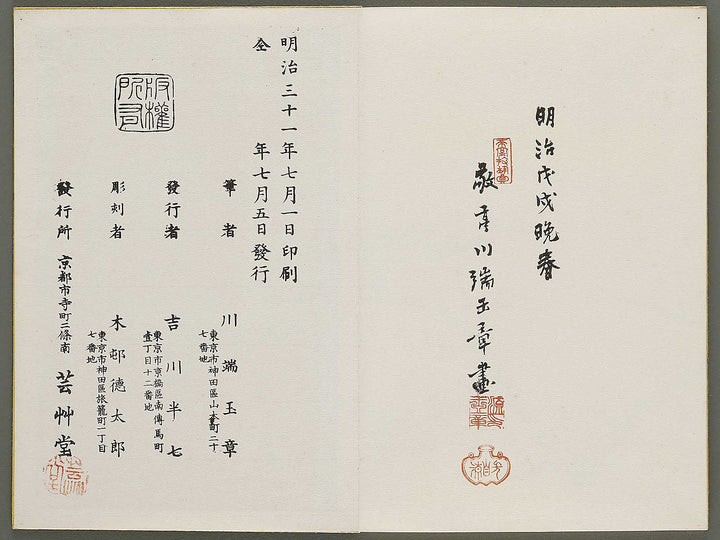 明治戊戌晩春
敬亭川端玉章畫
明治三十一年七月一日印刷
仝 年七月五日發行
筆者 川端玉章
東京市神田區山本町二十
七番地
發行者 吉川半七
東京市京橋區南傳馬町
壹丁目十二番地
彫刻者 木邨德太郎
東京市神田區旅籠町一丁目
七番地
發行所 京都市寺町二條南 芸艸堂
版權所有